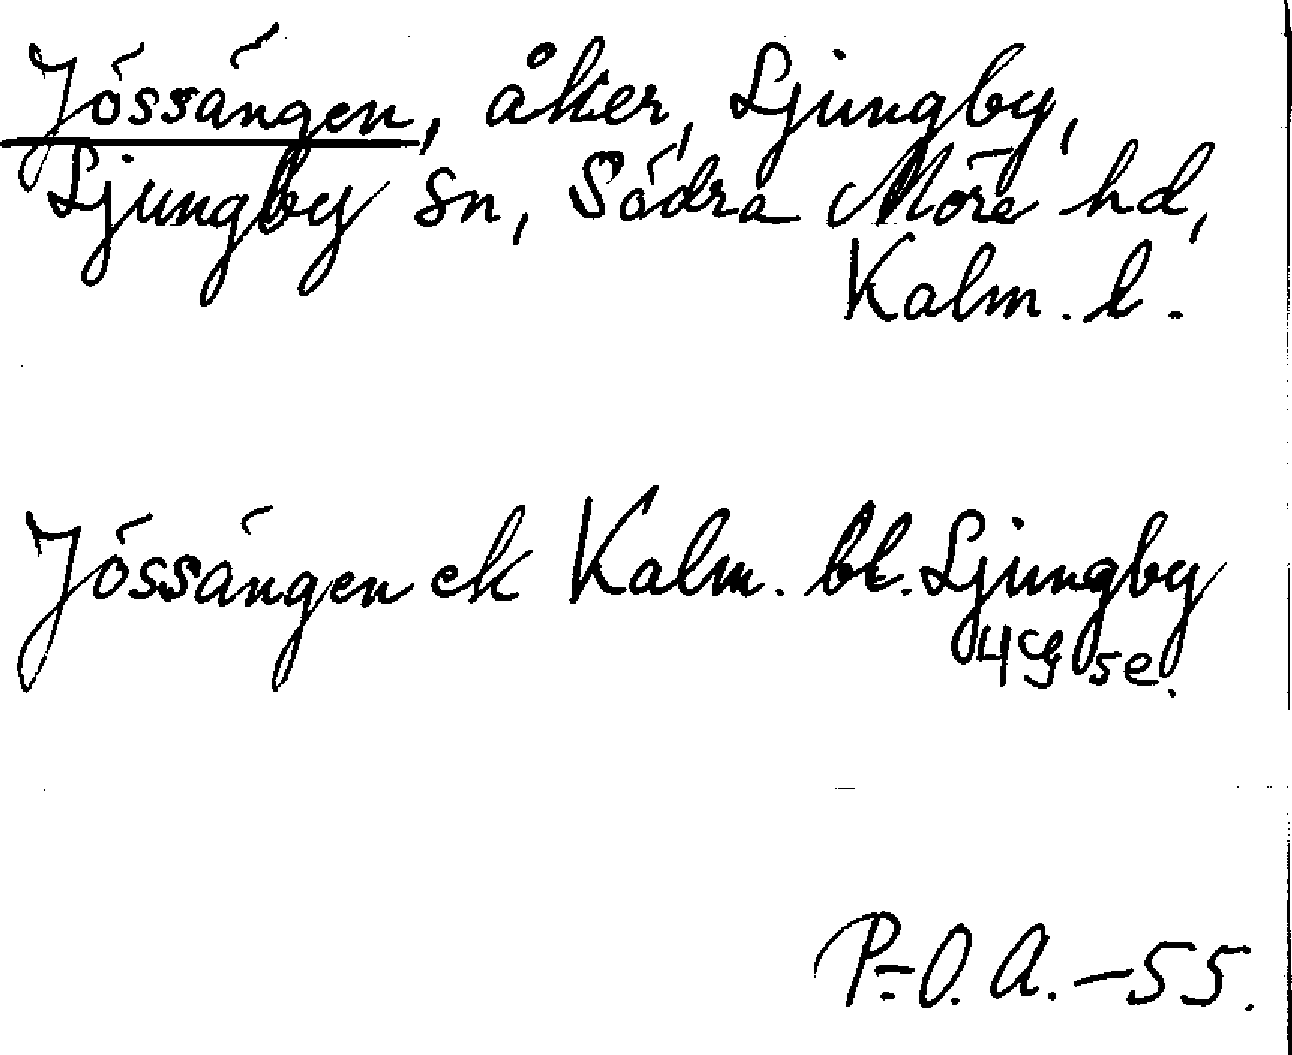 Jössängen, åker, Ljungby,
Ljungby sn, Södra Möre hd,
Kalm. l.
Jössängen ek Kalm. bl. Ljungby
4g se.
P.-O. A. – 55.